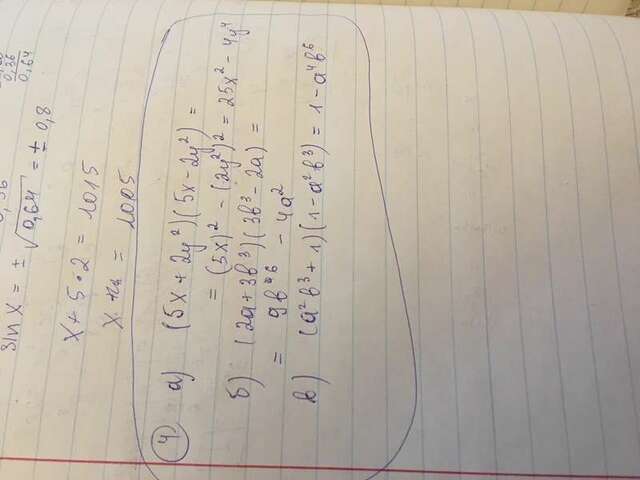 0,36
sin x = ± √0,64 = ± 0,8
0,36
0,64
x + 5 · 2 = 1015
x = 1005
4 а) (5x + 2y²)(5x - 2y²) =
= (5x)² - (2y²)² = 25x² - 4y⁴
б) (2a + 3b³)(3b³ - 2a) =
= 9b⁶ - 4a²
в) (a²b³ + 1)(1 - a²b³) = 1 - a⁴b⁶